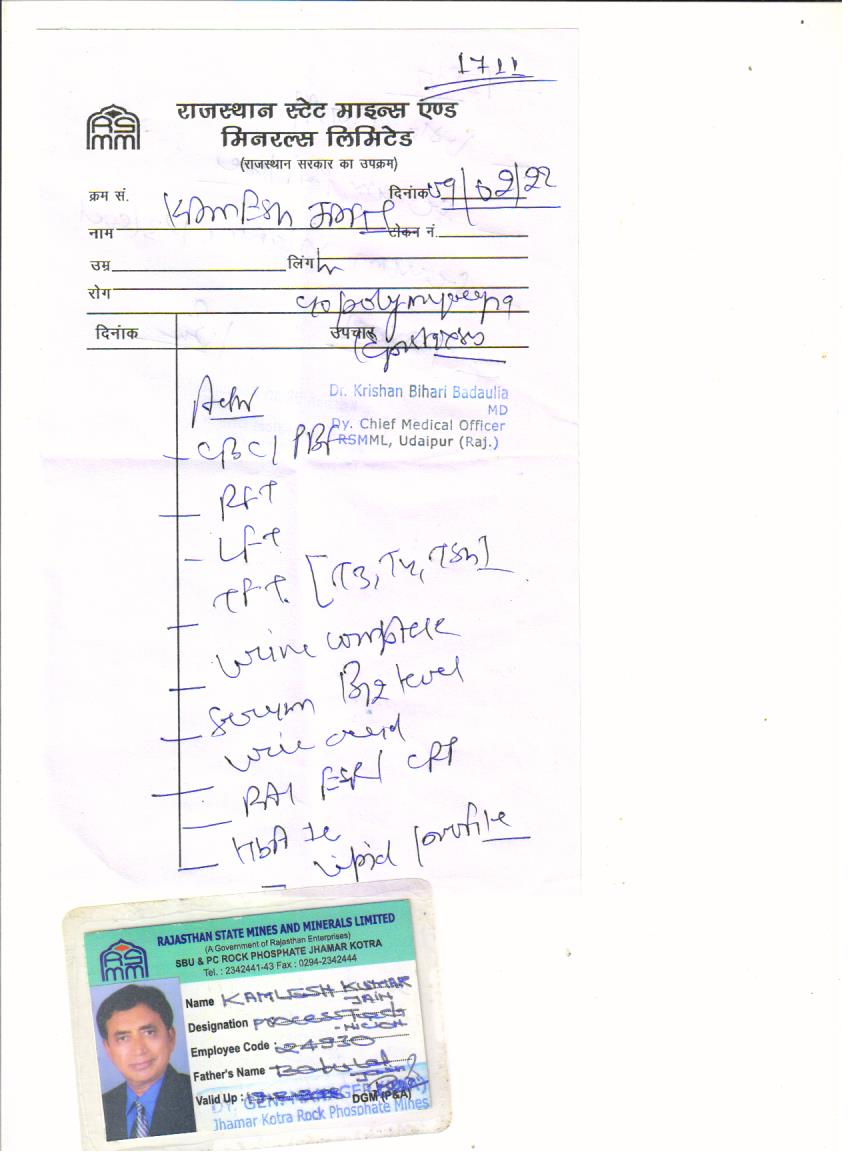 1711
RSMM
राजस्थान स्टेट माइन्स एण्ड
मिनरल्स लिमिटेड
(राजस्थान सरकार का उपक्रम)
क्रम सं. दिनांक 09/02/22
नाम Kamlesh Jain टोकन नं.
उम्र लिंग
रोग c/o polymyalgia
दिनांक उपचार
Adv
Dr. Krishan Bihari Badaulia
MD
Dy. Chief Medical Officer
RSMML, Udaipur (Raj.)
CBC/PBF
RFT
LFT
TFT. [T3, T4, TSH]
Urine complete
Serum B12 level
Uric acid
RA/ ESR/ CRP
HbA1c
Lipid profile
RSMM
RAJASTHAN STATE MINES AND MINERALS LIMITED
(A Government of Rajasthan Enterprises)
SBU & PC ROCK PHOSPHATE JHAMAR KOTRA
Tel. : 2342441-43 Fax : 0294-2342444
Name KAMLESH KUMAR
JAIN
Designation PROCESS TECH
-NICIAN
Employee Code : 24930
Father's Name Babulal
Jain
Valid Up : DGM (P&A)
DY. GEN. MANAGER (P&A)
Jhamar Kotra Rock Phosphate Mines